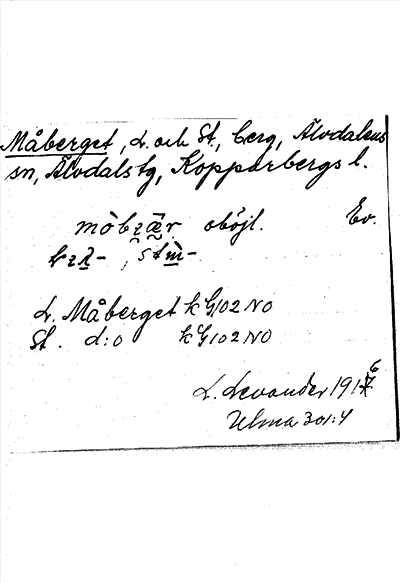 Måberget, L. och St., berg, Älvdalens
sn, Älvdals tg, Kopparbergs l.
oböjl. Ev.
L. Måberget k G102 NO
St. d:o k G102 NO
L. Levander 1916
Ulma 301:4